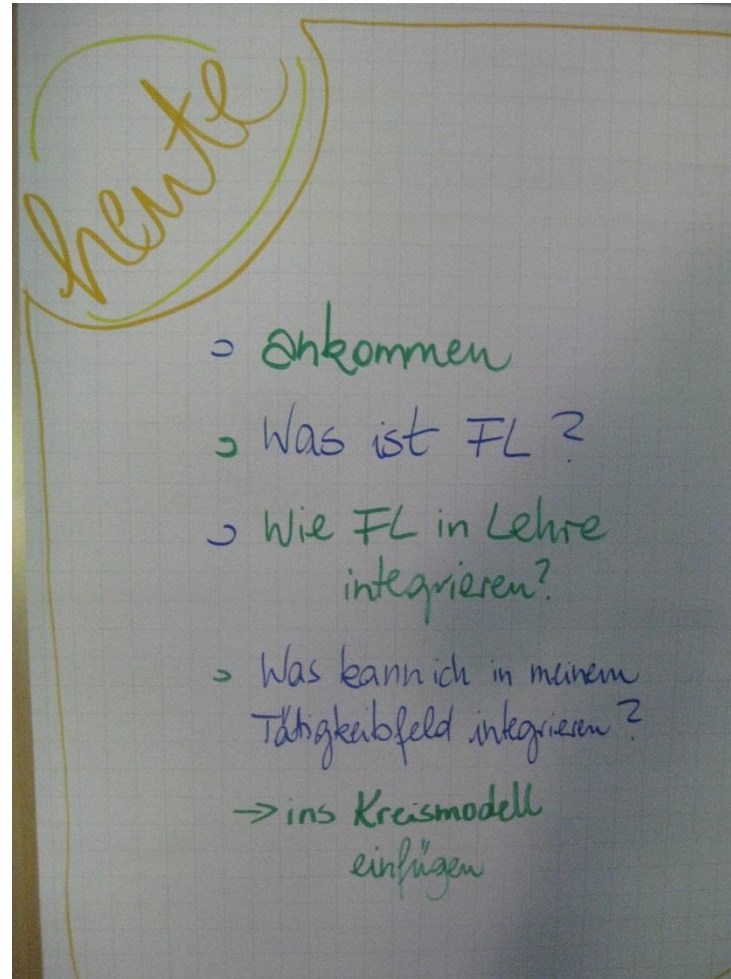 heute
ankommen
Was ist FL?
Wie FL in Lehre
integrieren?
Was kann ich in meinem
Tätigkeitsfeld integrieren?
→ ins Kreismodell
einfügen